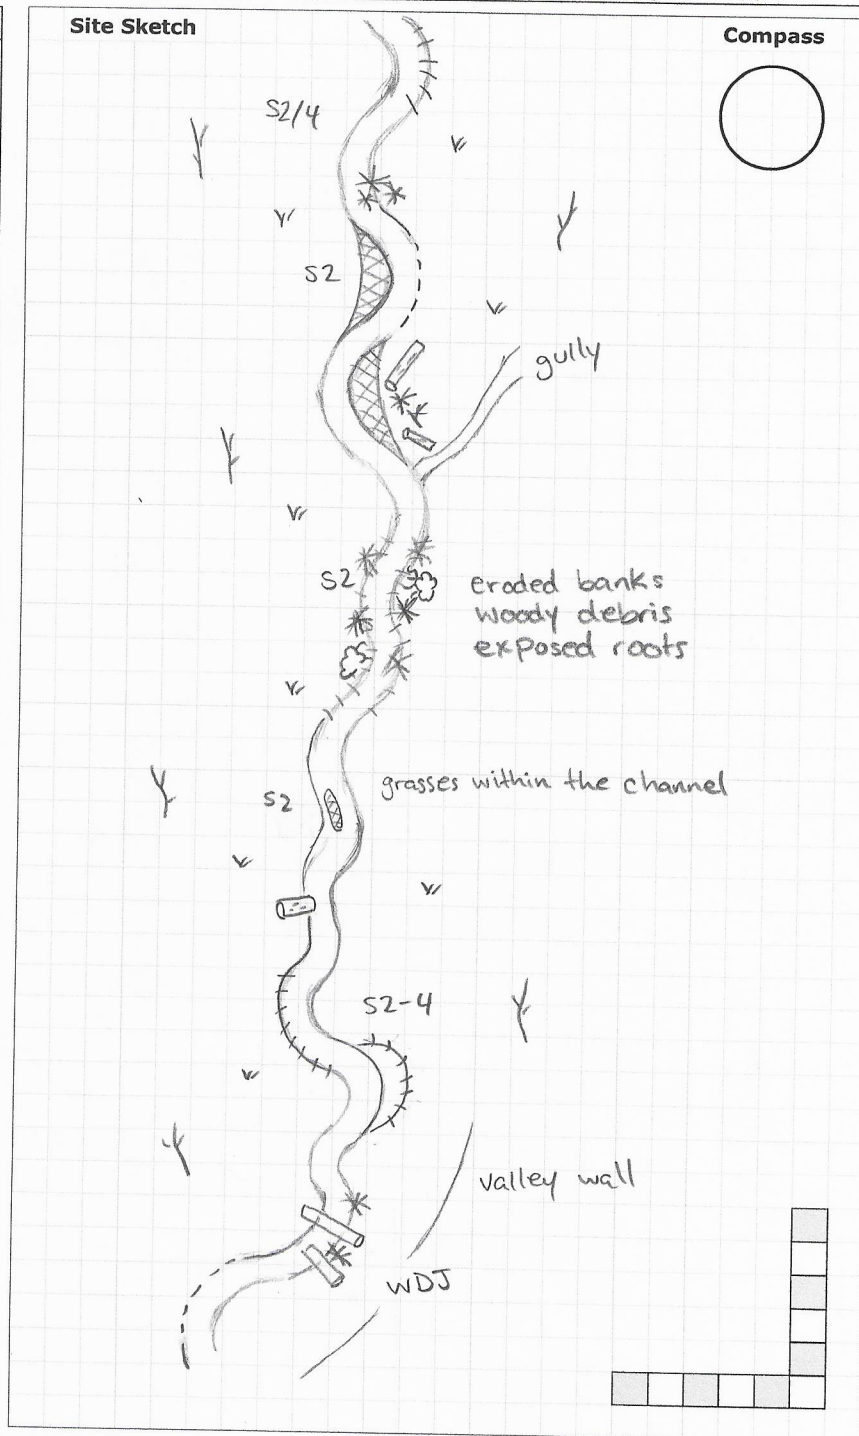 Site Sketch
Compass
S2/4
S2
gully
S2
eroded banks
woody debris
exposed roots
S2
grasses within the channel
S2-4
valley wall
WDJ